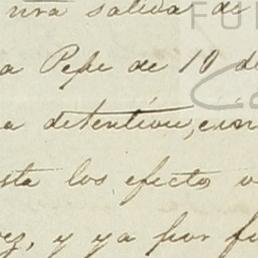 una salida de
a Pepe de 19 de
a detention, con
sta los efecto
ez, y ya por fi